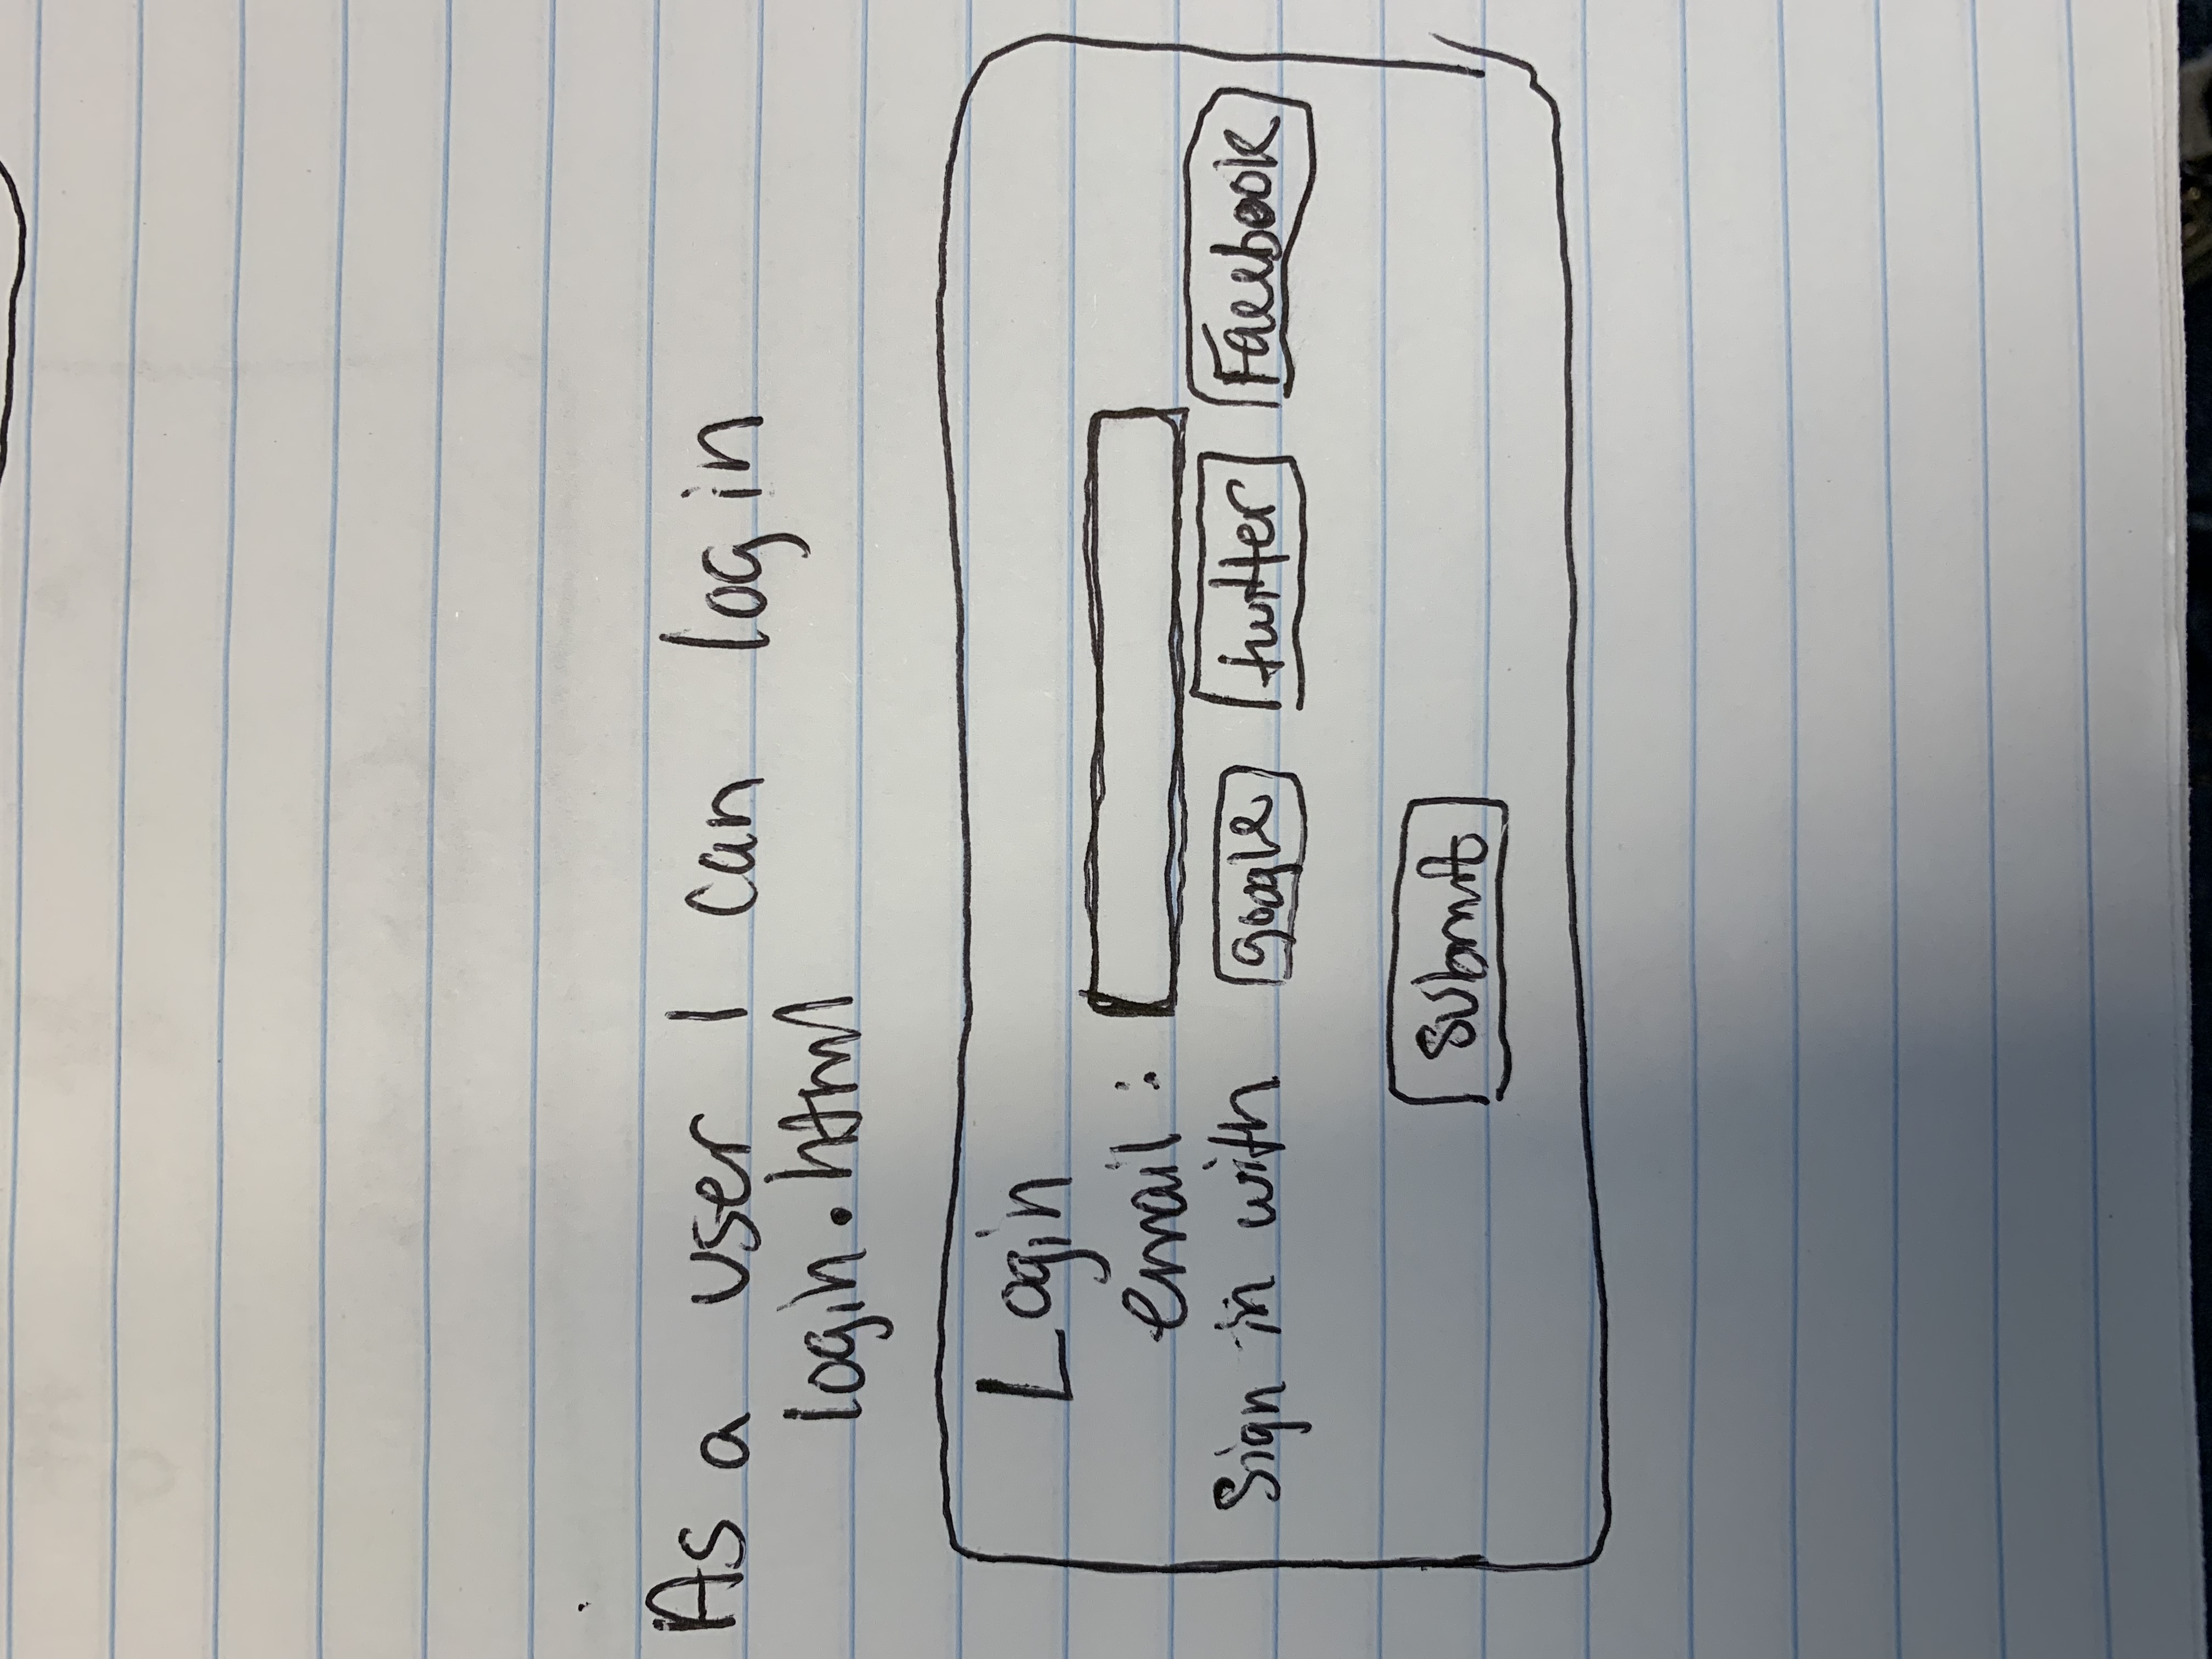 As a user I can login
login.html
Login
email:
Sign in with google twitter Facebook
submit